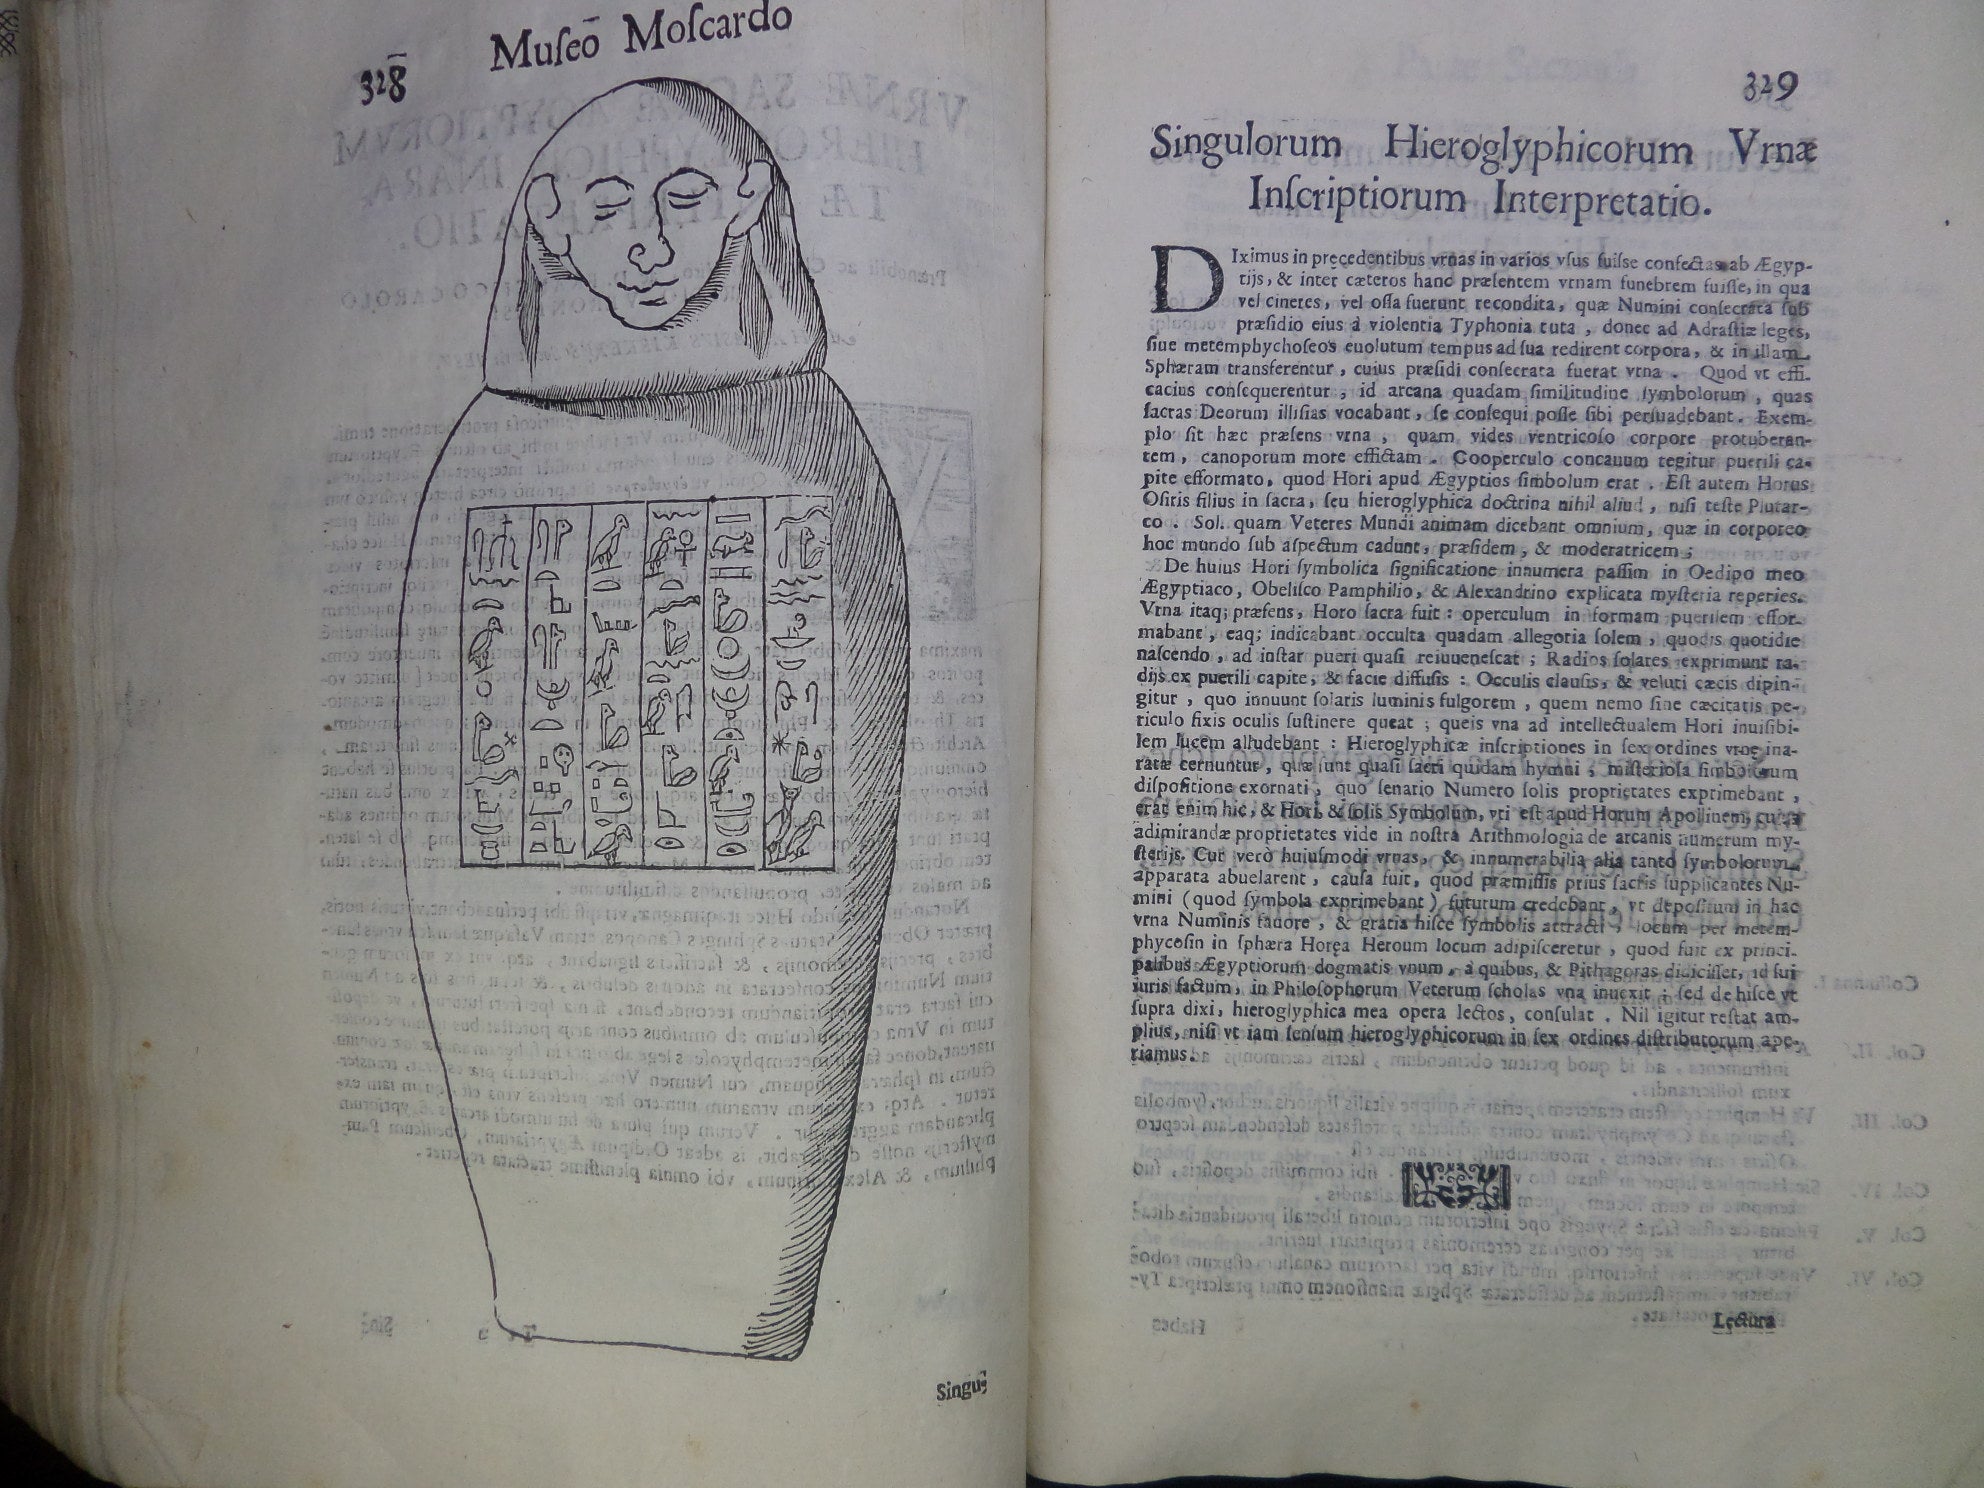 328
Muſeō Moſcardo
Singu-
329
Singulorum Hieroglyphicorum Vrnæ
Inſcriptiorum Interpretatio.
DIximus in pręcedentibus vrnas in varios vſus fuiſse confectas ab Ægyp-
tijs, & inter cæteros hanc præſentem vrnam funebrem fuiſſe, in qua
vel cineres, vel oſſa fuerunt recondita, quæ Numini conſecrata ſub
præſidio eius à violentia Typhonia tuta, donec ad Adraſtiæ leges,
ſiue metempbychoſeos euolutum tempus ad ſua redirent corpora, & in illam
Sphæram transferentur, cuius præſidi conſecrata fuerat vrna. Quod vt effi-
cacius conſequerentur, id arcana quadam ſimilitudine ſymbolorum, quas
ſacras Deorum illiſias vocabant, ſe conſequi poſſe ſibi perſuadebant. Exem-
plo ſit hæc præſens vrna, quam vides ventricoſo corpore protuberan-
tem, canoporum more effictam. Cooperculo concauum tegitur puerili ca-
pite efformato, quod Hori apud Ægyptios ſimbolum erat. Eſt autem Horus
Oſiris filius in ſacra, ſeu hieroglyphica doctrina nihil aliud, niſi teſte Plutar-
co. Sol. quam Veteres Mundi animam dicebant omnium, quæ in corporeo
hoc mundo ſub aſpectum cadunt, præſidem, & moderatricem;
De huius Hori ſymbolica ſignificatione innumera paſſim in Oedipo meo
Ægyptiaco, Obeliſco Pamphilio, & Alexandrino explicata myſteria reperies.
Vrna itaq; præſens, Horo ſacra fuit: operculum in formam puerilem effor-
mabant, eaq; indicabant occulta quadam allegoria ſolem, quod is quotidie
naſcendo, ad inſtar pueri quaſi reiuueneſcat; Radios ſolares exprimunt ra-
dijs ex puerili capite, & facie diffuſis: Occulis clauſis, & veluti cæcis dipin-
gitur, quo innuunt ſolaris luminis fulgorem, quem nemo ſine cæcitatis pe-
riculo fixis oculis ſuſtinere queat; queis vna ad intellectualem Hori inuiſibi-
lem lucem alludebant: Hieroglyphicæ inſcriptiones in ſex ordines vrnę ina-
ratæ cernuntur, quæ ſunt quaſi ſacri quidam hymni; miſterioſa ſimbolorum
diſpoſitione exornati, quo ſenario Numero ſolis proprietates exprimebant,
erat enim hic, & Hori, & ſolis Symbolum, vti eſt apud Horum Apollinem, cuius
adimirandæ proprietates vide in noſtra Arithmologia de arcanis numerum my-
ſterijs. Cur verò huiuſmodi vrnas, & innumerabilia alia tanto ſymbolorum
apparata abuelarent, cauſa fuit, quod præmiſſis prius ſacris ſupplicantes Nu-
mini (quod ſymbola exprimebant) futurum credebant, vt depoſitum in hac
vrna Numinis fauore, & gratia hiſce ſymbolis attracti, locum per metem-
phycoſin in ſphæra Horęa Heroum locum adipiſceretur, quod fuit ex princi-
palibus Ægyptiorum dogmatis vnum, à quibus, & Pithagoras didiciſſet, id ſui
iuris factum, in Philoſophorum Veterum ſcholas vna inuexit; ſed de hiſce vt
ſupra dixi, hieroglyphica mea opera lectos, conſulat. Nil igitur reſtat am-
plius, niſi vt iam ſenſum hieroglyphicorum in ſex ordines diſtributorum ape-
riamus.
Lectura